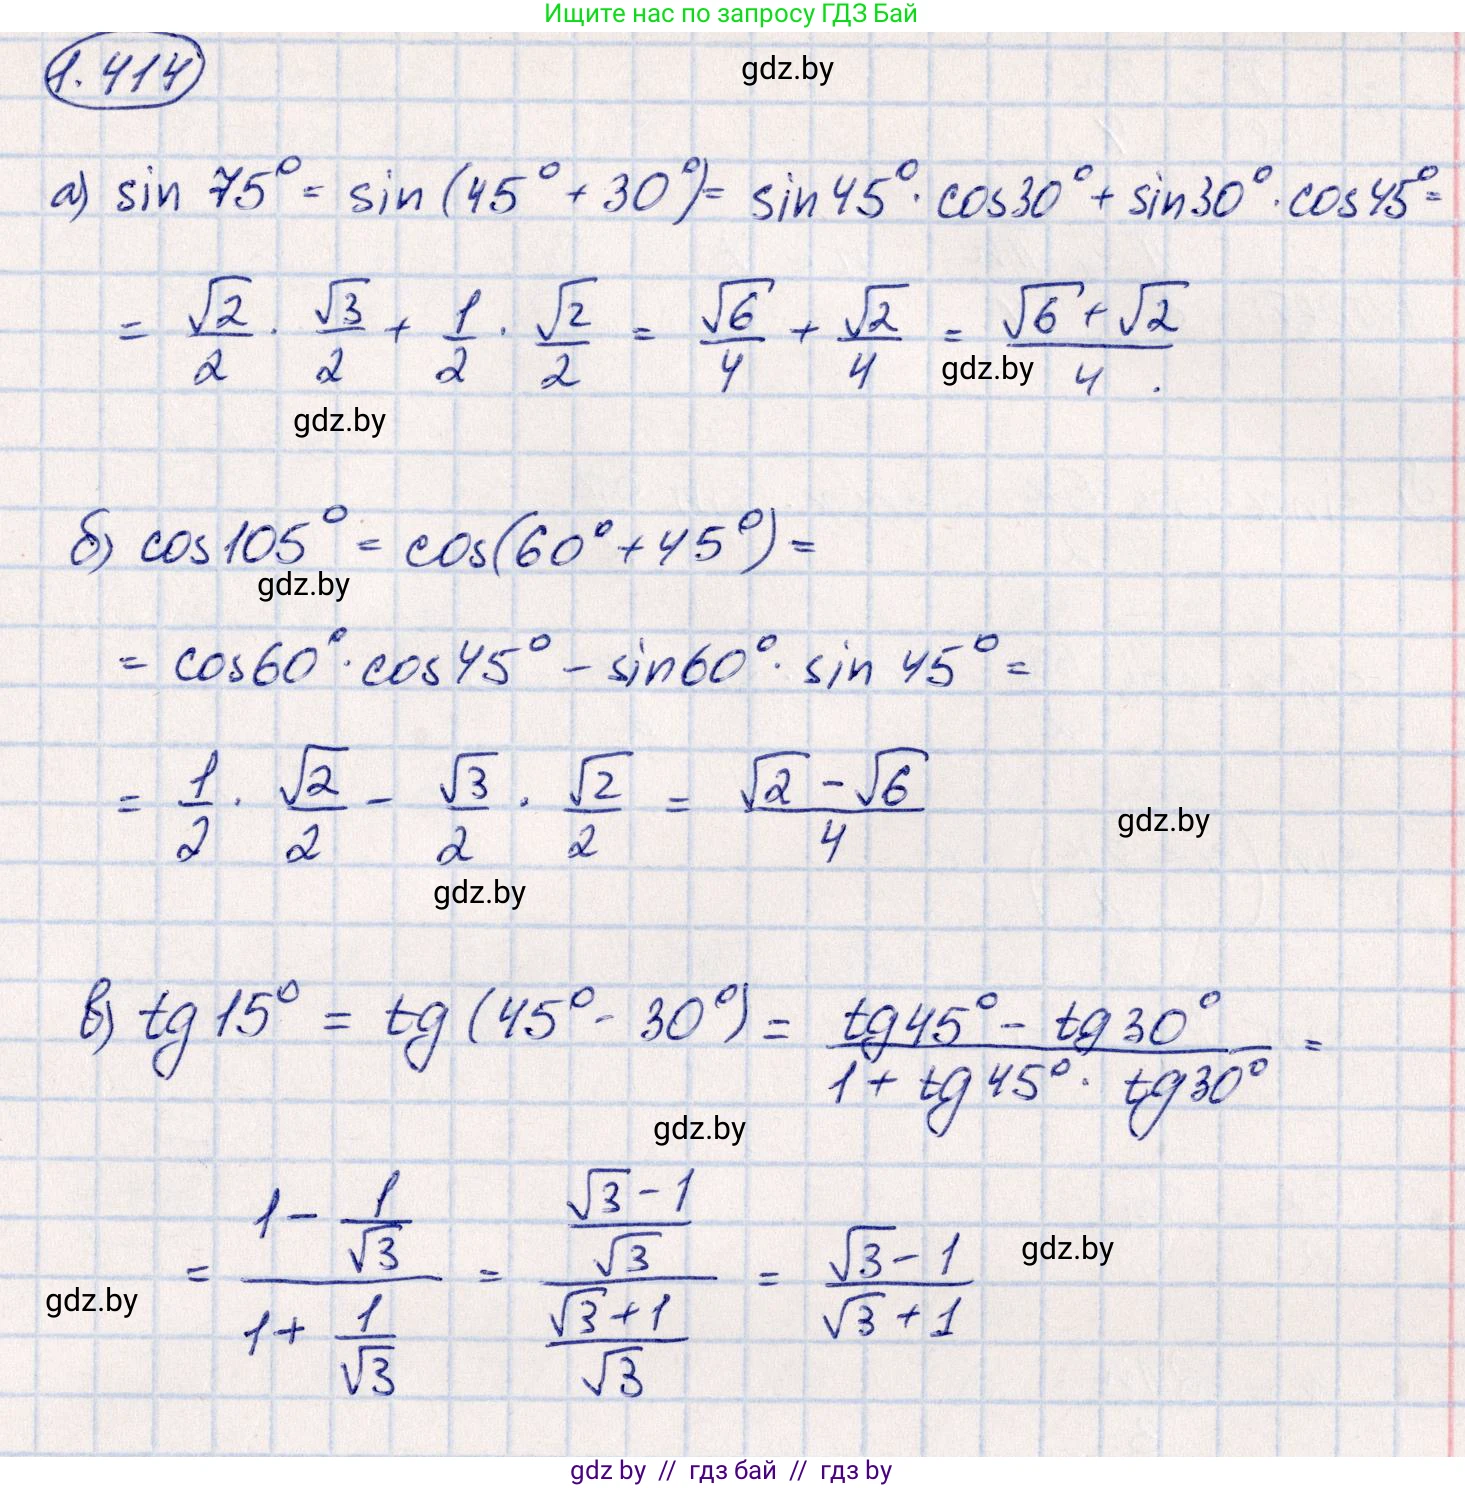 Ищите нас по запросу ГДЗ Бай
1.414
gdz.by
а) sin 75° = sin (45° + 30°) = sin 45° · cos 30° + sin 30° · cos 45° =
= √2/2 · √3/2 + 1/2 · √2/2 = √6/4 + √2/4 = (√6 + √2)/4 .
gdz.by
gdz.by
б) cos 105° = cos (60° + 45°) =
gdz.by
= cos 60° · cos 45° - sin 60° · sin 45° =
= 1/2 · √2/2 - √3/2 · √2/2 = (√2 - √6)/4
gdz.by
gdz.by
в) tg 15° = tg (45° - 30°) = (tg 45° - tg 30°)/(1 + tg 45° · tg 30°) =
gdz.by
= (1 - 1/√3)/(1 + 1/√3) = ((√3 - 1)/√3)/((√3 + 1)/√3) = (√3 - 1)/(√3 + 1)
gdz.by
gdz.by
gdz by // гдз бай // гдз by